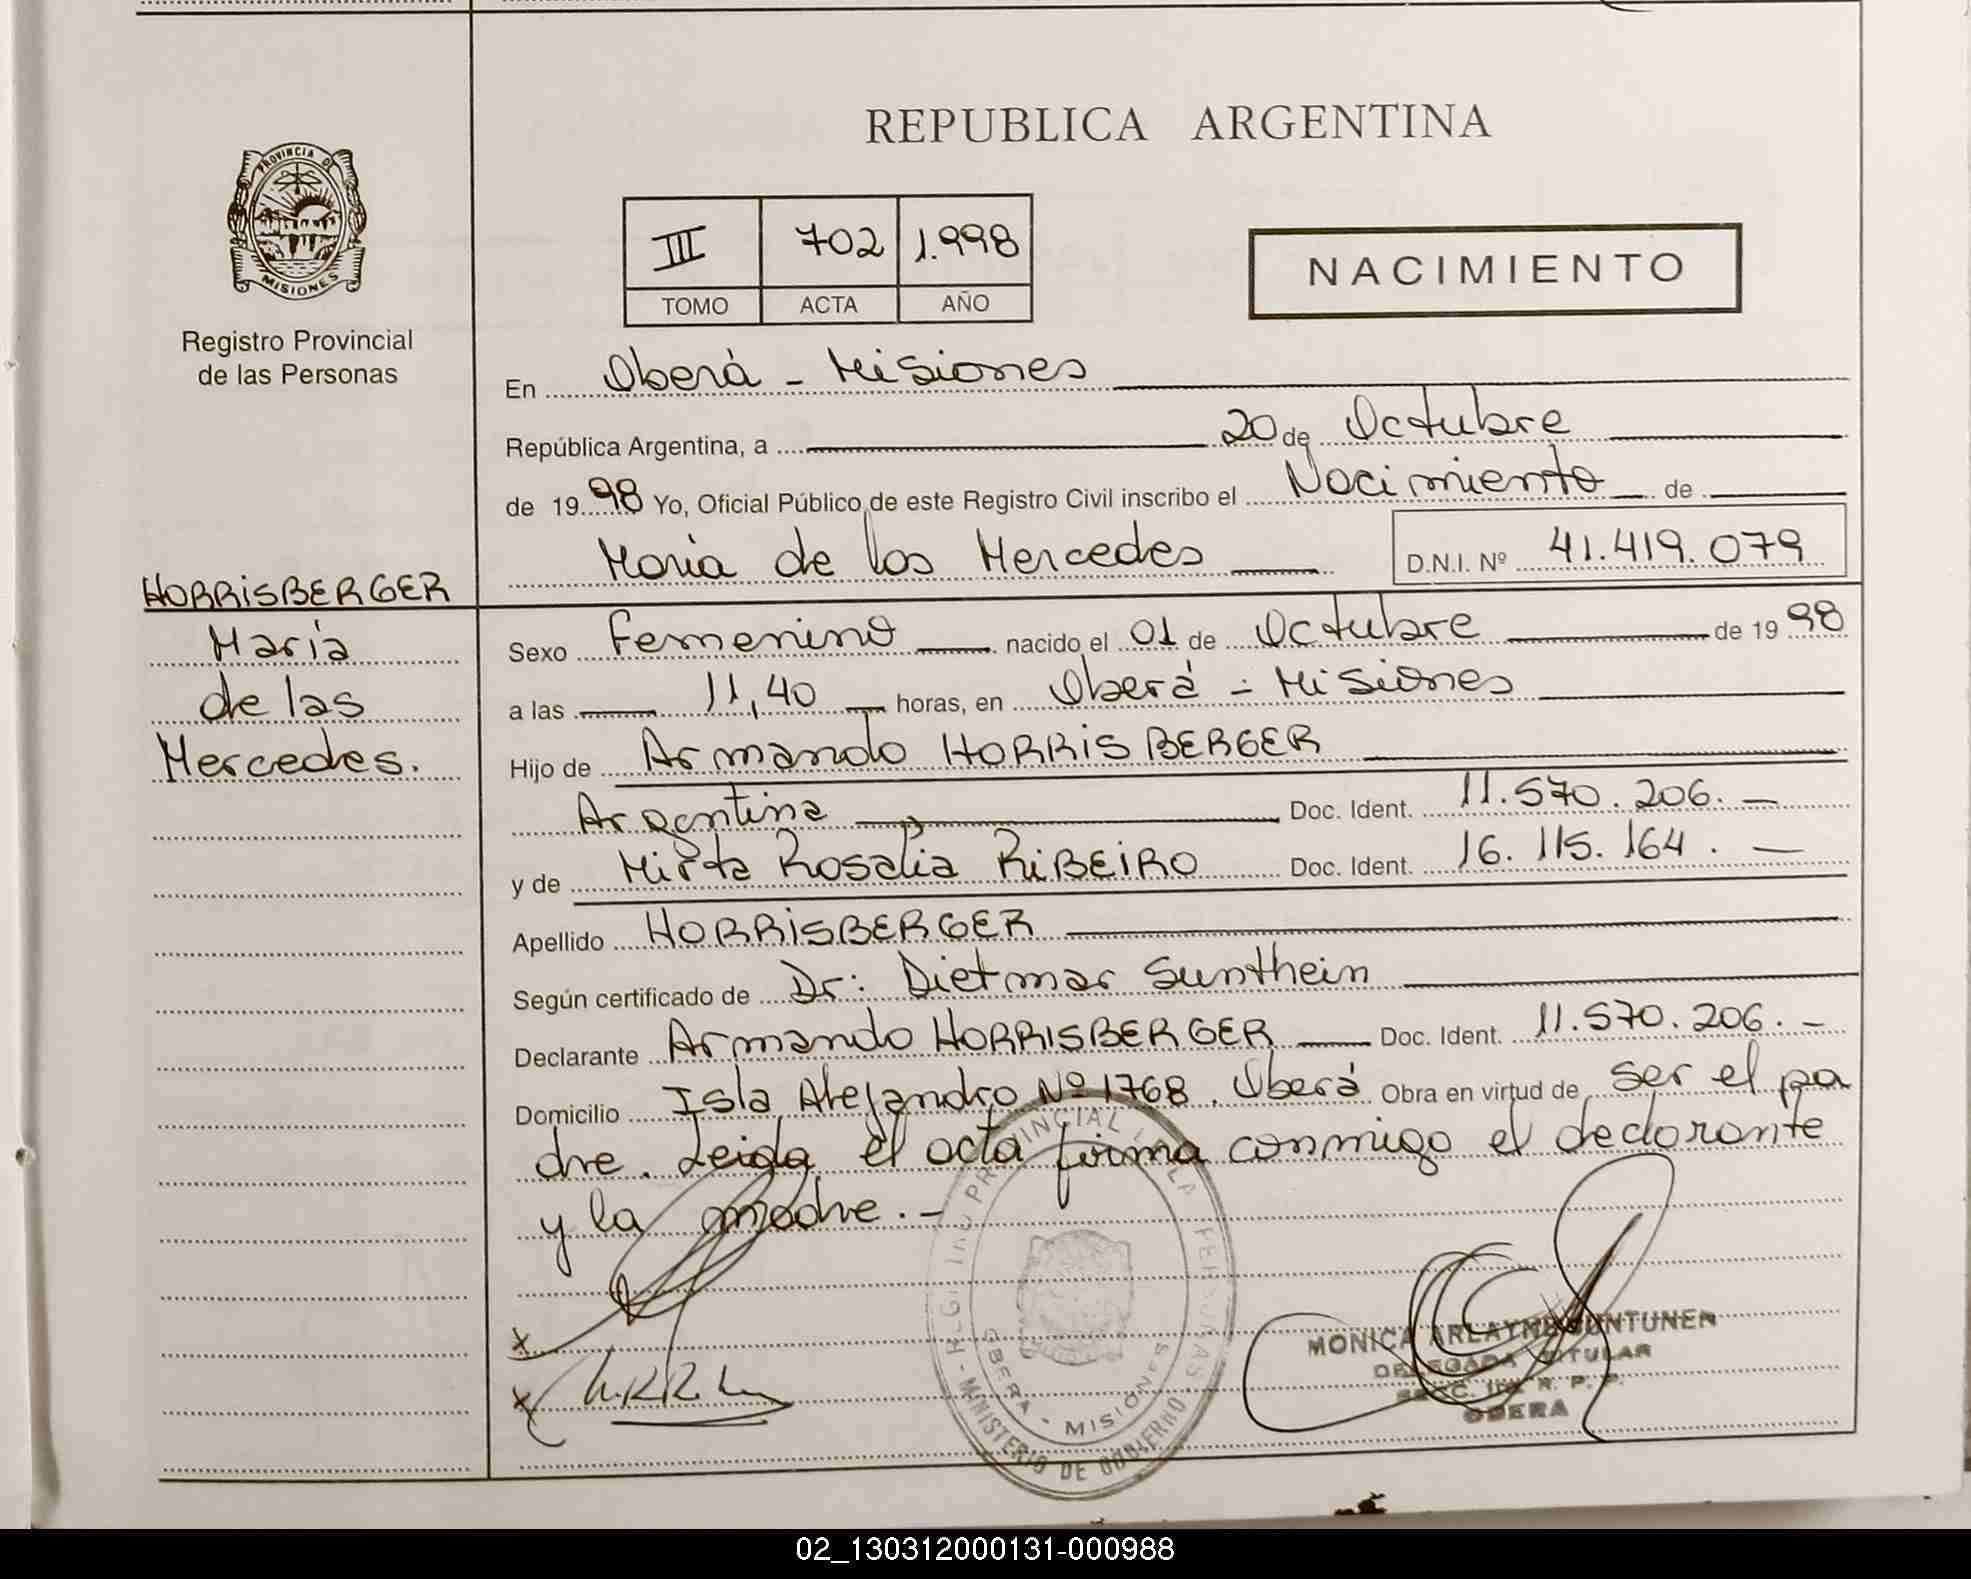 REPUBLICA ARGENTINA
PROVINCIA DE
MISIONES
Registro Provincial
de las Personas
III 702 1.998
TOMO ACTA AÑO
NACIMIENTO
En Oberá - Misiones
República Argentina, a 20 de Octubre
de 1998 Yo, Oficial Público de este Registro Civil inscribo el Nacimiento de
María de las Mercedes D.N.I. Nº 41.419.079
HORRISBERGER
María
de las
Mercedes.
Sexo Femenino nacido el 01 de Octubre de 1998
a las 11,40 horas, en Oberá - Misiones
Hijo de Armando HORRISBERGER
Argentina Doc. Ident. 11.570.206. -
y de Mirta Rosalia RIBEIRO Doc. Ident. 16.115.164. -
Apellido HORRISBERGER
Según certificado de Dr: Dietmar Sunthein
Declarante Armando HORRISBERGER Doc. Ident. 11.570.206. -
Domicilio Isla Alejandro Nº 1768. Oberá Obra en virtud de ser el pa
dre. Leida el acta firma conmigo el declarante
y la madre. -
REGISTRO PROVINCIAL DE LAS PERSONAS
OBERA - MISIONES
MINISTERIO DE GOBIERNO
MONICA ARLAYNE
DELEGADA TITULAR
SECC. R. P. P.
OBERA
02_130312000131-000988